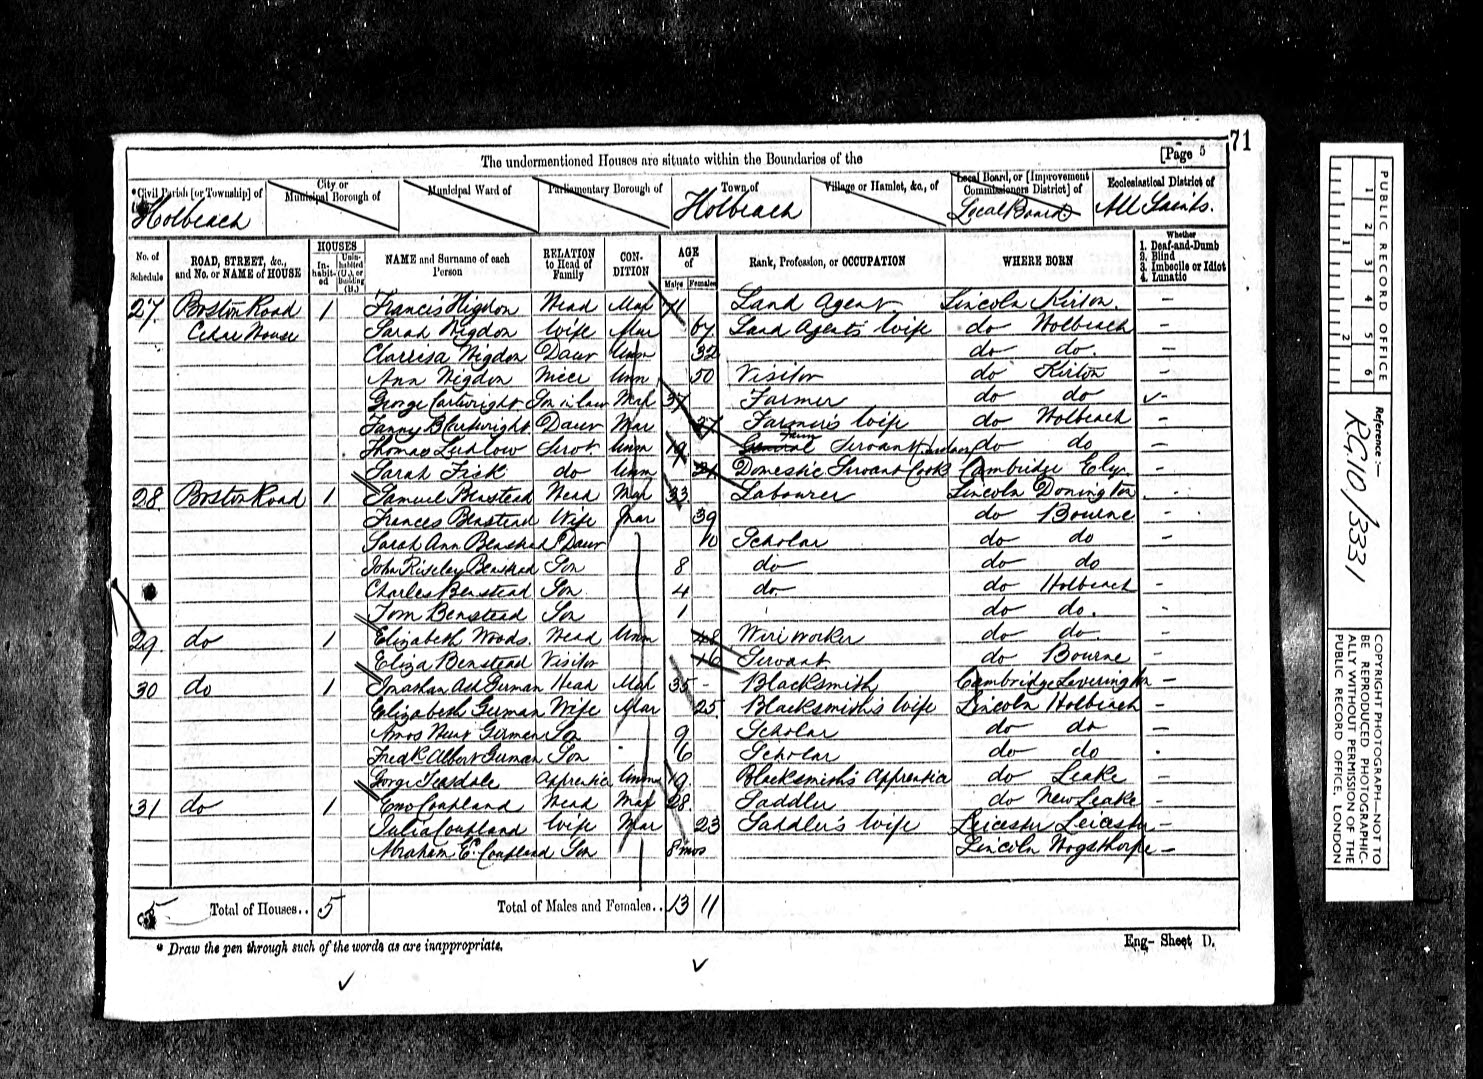 71
The undermentioned Houses are situate within the Boundaries of the [Page 5
*Civil Parish [or Township] of City or Municipal Borough of Municipal Ward of Parliamentary Borough of Town of Village or Hamlet, &c., of Local Board, or [Improvement Commissioners District] of Ecclesiastical District of
Holbeach Holbeach Local Board All Saints.
No. of Schedule ROAD, STREET, &c., and No. or NAME of HOUSE HOUSES In-habit-ed Unin-habited (U.), or Building (B.) NAME and Surname of each Person RELATION to Head of Family CON-DITION AGE of Males Females Rank, Profession, or OCCUPATION WHERE BORN Whether 1. Deaf-and-Dumb 2. Blind 3. Imbecile or Idiot 4. Lunatic
27 Boston Road 1 Francis Higdon Head Mar 71 Land Agent Lincoln Kirton. –
House Sarah Higdon Wife Mar 67 Land Agent's Wife do Holbeach –
Higdon Daur Unm 32 do do. –
Ann Higdon Niece Unm 50 Visitor do Kirton –
George Cartwright Son in law Mar 37 Farmer do do –
Fanny B Cartwright Daur Mar 27 Farmer's Wife do Holbeach –
Thomas Ludlow Servt Unm 19 General Farm Servant Indoor do do –
Sarah Fisk do Unm 21 Domestic Servant Cook Cambridge Ely –
28 Boston Road 1 Samuel Benstead Head Mar 33 Labourer Lincoln Donington –
Frances Benstead Wife Mar 39 do Bourne –
Sarah Ann Benstead Daur 10 Scholar do do –
John Riseley Benstead Son 8 do do do –
Charles Benstead Son 4 do do Holbeach –
Tom Benstead Son 1 do do. –
29 do 1 Elizabeth Woods. Head Unm 48 Wire worker do do –
Eliza Benstead Visitor 16 Servant do Bourne –
30 do 1 Jonathan Ash German Head Mar 35 Blacksmith Cambridge Leverington –
Elizabeth German Wife Mar 25 Blacksmith's Wife Lincoln Holbeach –
Amos German Son 9 Scholar do do –
Fredk Albert German Son 6 Scholar do do
George Teasdale Apprentice Unm 19 Blacksmith's Apprentice do Leake –
31 do 1 Coupland Head Mar 28 Saddler do New Leake –
Julia Coupland Wife Mar 23 Saddler's Wife Leicester Leicester –
Abraham E. Coupland Son 8 mos Lincoln Hogsthorpe –
5 Total of Houses.. 5 Total of Males and Females.. 13 11
* Draw the pen through such of the words as are inappropriate. Eng- Sheet D.
PUBLIC RECORD OFFICE
1 2 3 4 5 6
1 2
Reference :—
RG10/3331
COPYRIGHT PHOTOGRAPH—NOT TO
BE REPRODUCED PHOTOGRAPHIC-
ALLY WITHOUT PERMISSION OF THE
PUBLIC RECORD OFFICE, LONDON